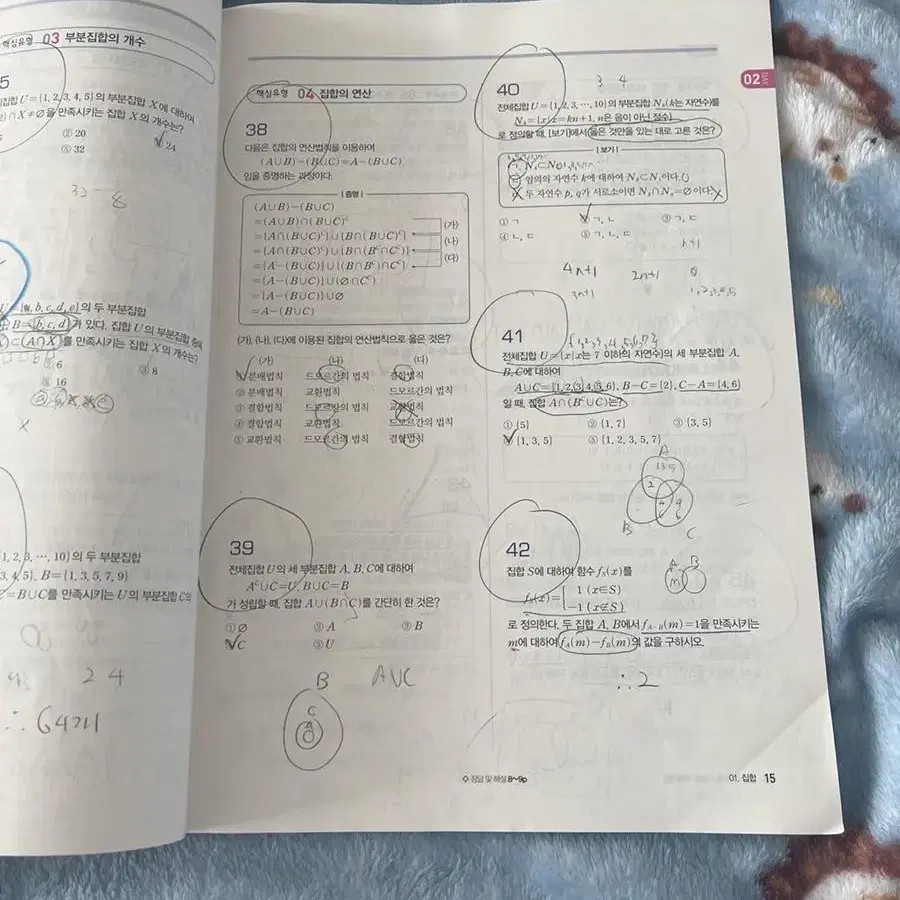 핵심유형 03 부분집합의 개수
5
집합 U={1, 2, 3, 4, 5}의 부분집합 X에 대하여
∩X≠∅을 만족시키는 집합 X의 개수는?
② 20
24
⑤ 32
8
b, c, d, e}의 두 부분집합
B={b, c, d}가 있다. 집합 U의 부분집합 중에
⊂(A∩X)를 만족시키는 집합 X의 개수는?
6
③ 8
16
1, 2, 3, ⋯, 10}의 두 부분집합
3, 4, 5}, B={1, 3, 5, 7, 9}
=B∪C를 만족시키는 U의 부분집합 C의
2 4
∴ 64개
핵심유형 04 집합의 연산
38
다음은 집합의 연산법칙을 이용하여
(A∪B)−(B∪C)=A−(B∪C)
임을 증명하는 과정이다.
[증명]
(A∪B)−(B∪C)
=(A∪B)∩(B∪C)ᶜ
={A∩(B∪C)ᶜ}∪{B∩(B∪C)ᶜ} (가)
={A∩(B∪C)ᶜ}∪{B∩(Bᶜ∩Cᶜ)} (나)
={A−(B∪C)}∪{(B∩Bᶜ)∩Cᶜ} (다)
={A−(B∪C)}∪(∅∩Cᶜ)
={A−(B∪C)}∪∅
=A−(B∪C)
(가), (나), (다)에 이용된 집합의 연산법칙으로 옳은 것은?
(가) (나) (다)
① 분배법칙 드모르간의 법칙 결합법칙
② 분배법칙 교환법칙 드모르간의 법칙
③ 결합법칙 드모르간의 법칙 교환법칙
④ 결합법칙 교환법칙 드모르간의 법칙
⑤ 교환법칙 드모르간의 법칙 결합법칙
39
전체집합 U의 세 부분집합 A, B, C에 대하여
Aᶜ∪C=U, B∪C=B
가 성립할 때, 집합 A∪(B∩C)를 간단히 한 것은?
① ∅ ② A ③ B
④ C ⑤ U
B
A∪C
C
A
3 4
40
전체집합 U={1, 2, 3, ⋯, 10}의 부분집합 Nₖ(k는 자연수)를
Nₖ={x|x=kn+1, n은 음이 아닌 정수}
로 정의할 때, [보기]에서 옳은 것만을 있는 대로 고른 것은?
[보기]
ㄱ. N₄⊂N₂
ㄴ. 임의의 자연수 k에 대하여 Nₖ⊂N₁이다.
ㄷ. 두 자연수 p, q가 서로소이면 Nₚ∩N_q=∅이다.
① ㄱ ② ㄱ, ㄴ ③ ㄱ, ㄷ
④ ㄴ, ㄷ ⑤ ㄱ, ㄴ, ㄷ
n+1
4n+1 2n+1 0
3n+1 1, 2, 3, 4, 5
41
{1, 2, 3, 4, 5, 6, 7}
전체집합 U={x|x는 7 이하의 자연수}의 세 부분집합 A,
B, C에 대하여
A∪C={1, 2, 3, 4, 5, 6}, B−C={2}, C−A={4, 6}
일 때, 집합 A∩(Bᶜ∪C)는?
① {5} ② {1, 7} ③ {3, 5}
④ {1, 3, 5} ⑤ {1, 2, 3, 5, 7}
A
1 3 5
2
4
6
B C
42
집합 S에 대하여 함수 fₛ(x)를
fₛ(x)={ 1 (x∈S)
−1 (x∉S)
로 정의한다. 두 집합 A, B에서 f_{A−B}(m)=1을 만족시키는
m에 대하여 f_A(m)−f_B(m)의 값을 구하시오.
A B
m
∴ 2
02 DAY
정답 및 해설 8~9p
01. 집합 15